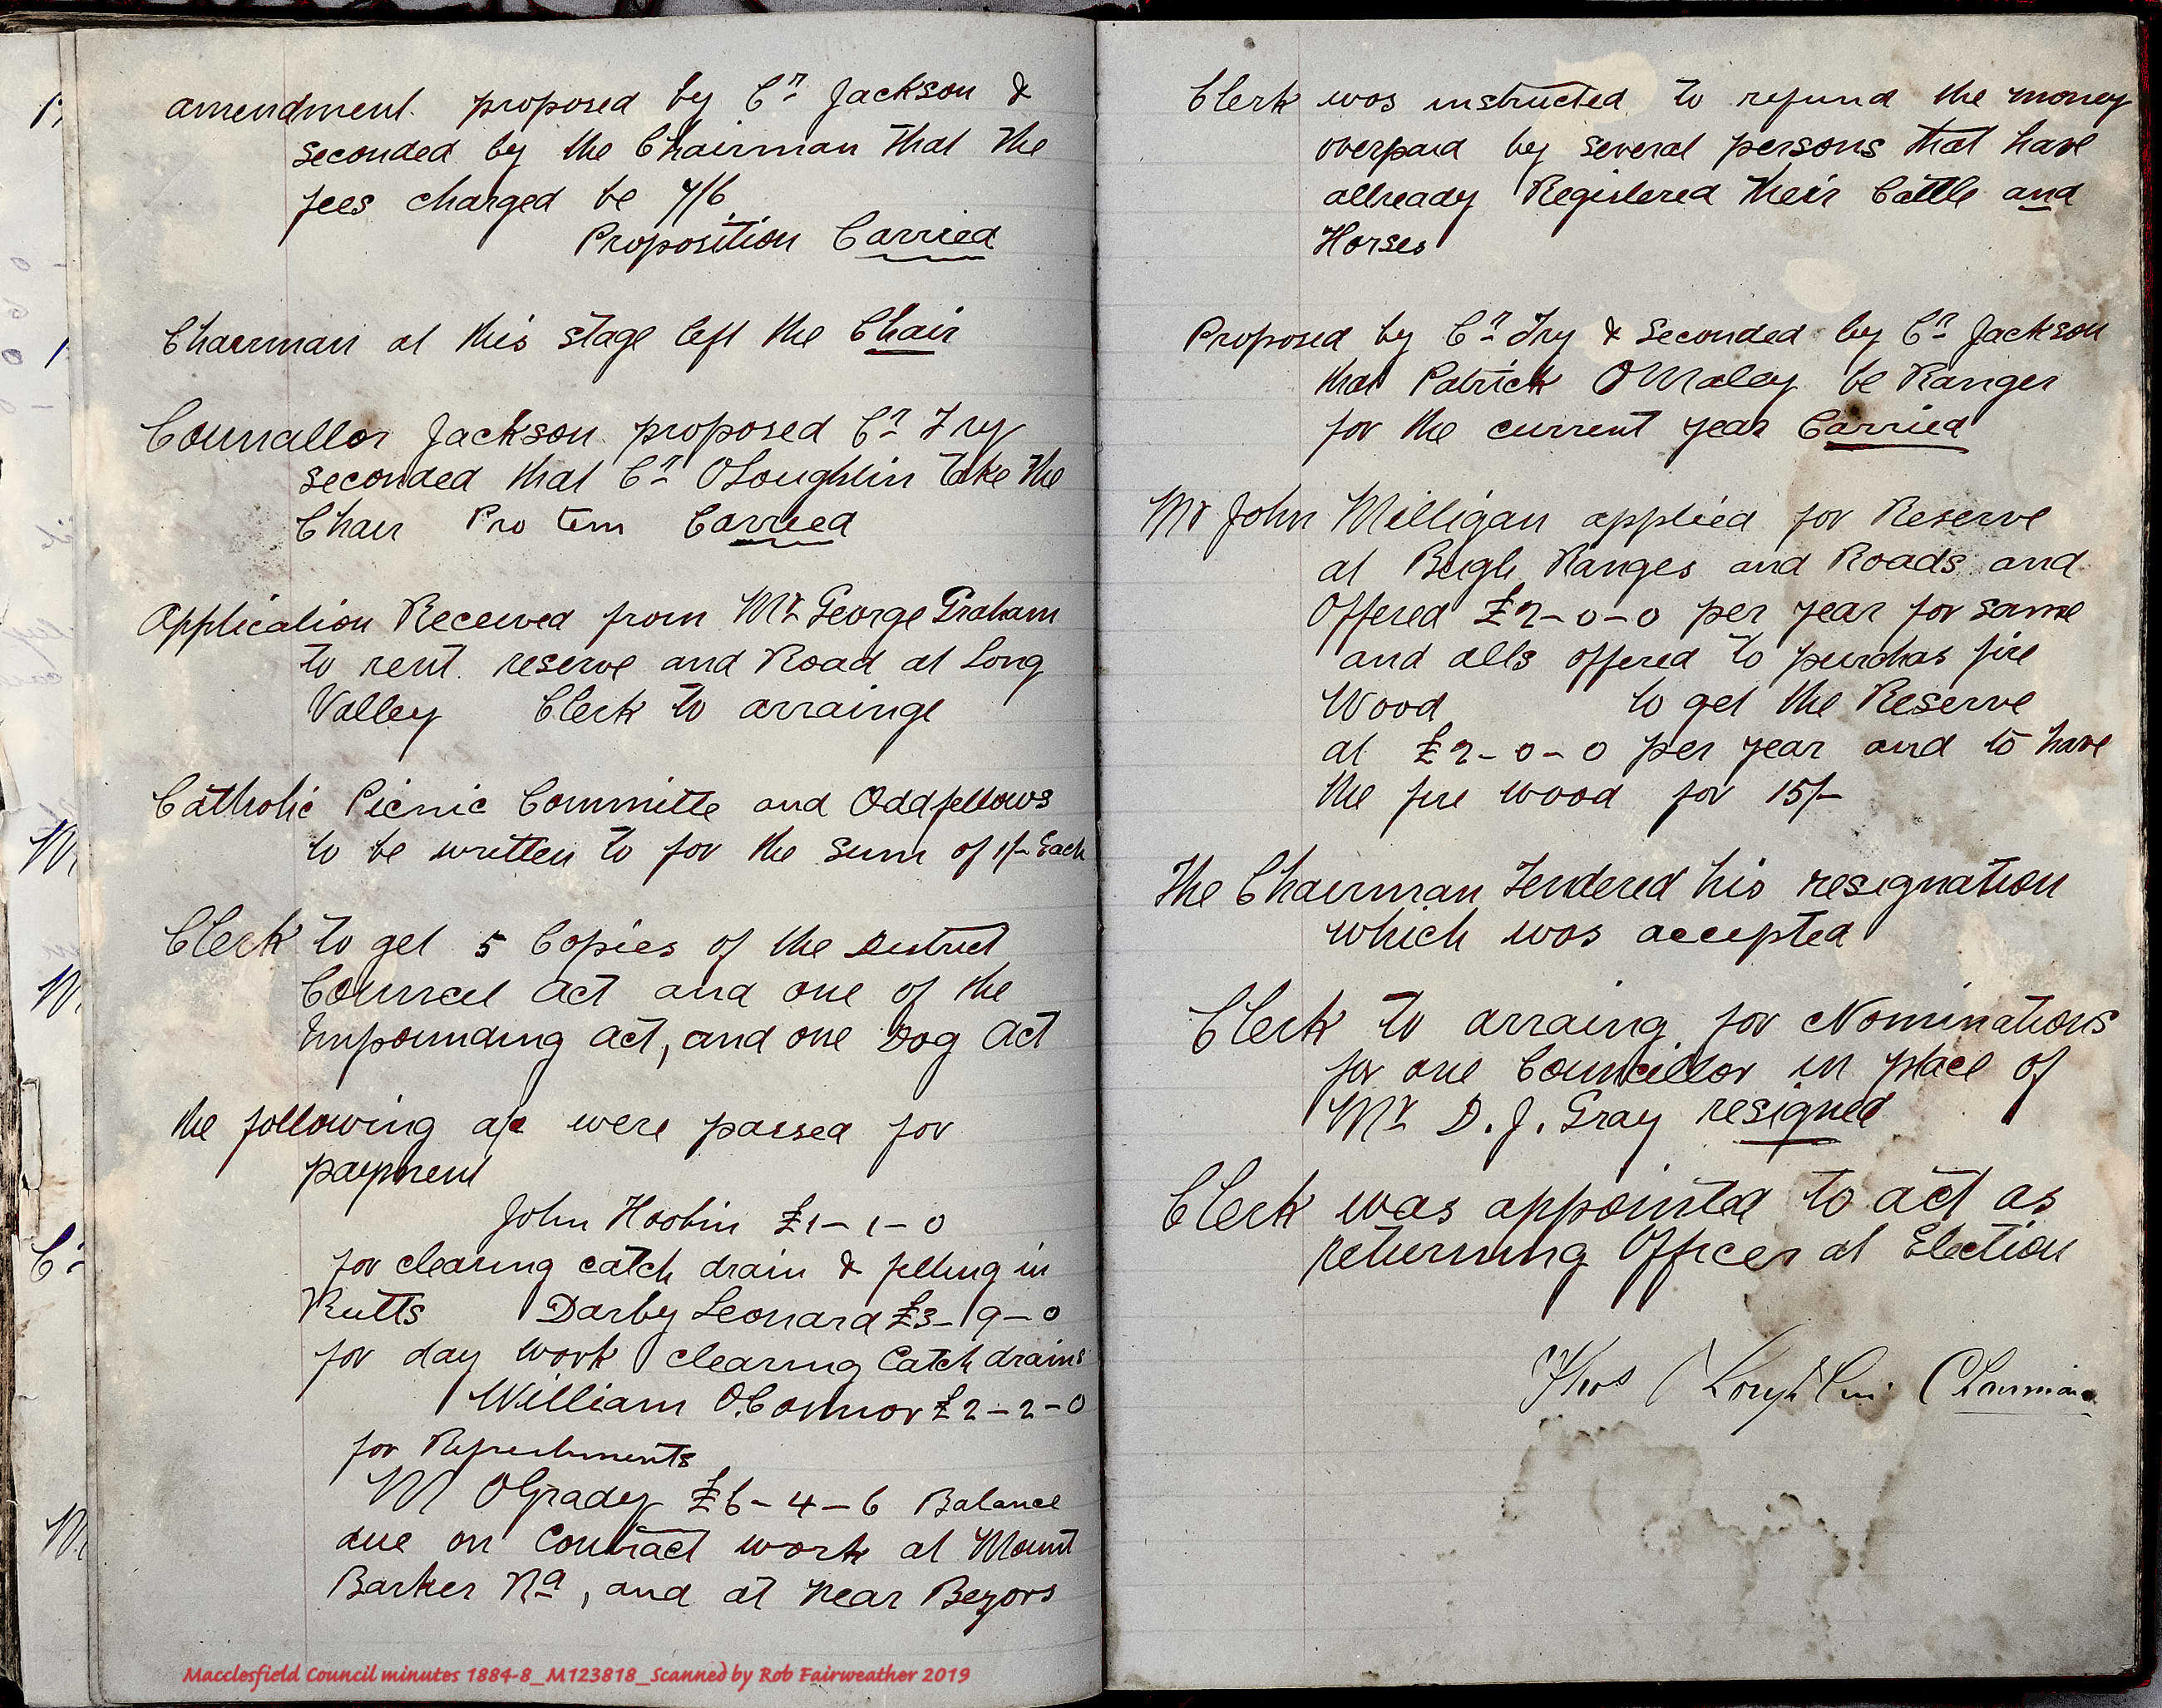 amendment. proposed by Cr Jackson &
seconded by the Chairman that the
fees charged be 7/6
Proposition Carried
Chairman at this stage left the Chair
Councallor Jackson proposed Cr Fry
seconded that Cr OLoughlin take the
Chair Pro tem Carried
Application Received from Mr George Graham
to rent reserve and Road at Long
Valley Clerk to arrainge
Catholic Picnic Committe and Oddfellows
to be written to for the sum of 1/- Each
Clerk to get 5 Copies of the District
Council act and one of the
Impounding act, and one Dog Act
the following a/c were passed for
payment
John Hoobin £1-1-0
for clearing catch drain & filling in
Rutts Darby Leonard £3-19-0
for day work clearing Catch drains
William O.Connor £2-2-0
for Refreshments
M OGrady £6-4-6 Balance
due on Contract work at Mount
Barker Rd, and at near Bezors
Macclesfield Council minutes 1884-8_M123818_Scanned by Rob Fairweather 2019
Clerk was instructed to refund the money
overpaid by several persons that have
allready Registered their Cattle and
Horses
Proposed by Cr Fry & Seconded by Cr Jackson
that Patrick OMaley be Ranger
for the current year Carried
Mr John Milligan applied for Reserve
at Bugle Ranges and Roads and
Offered £2-0-0 per year for same
and alls offered to purchas fire
Wood to get the Reserve
at £2-0-0 per year and to have
the fire wood for 15/-
The Chairman Tendered his resignation
which was accepted
Clerk to arraing for Nominations
for one Councillor in place of
Mr D. J. Gray resigned
Clerk was appointed to act as
returning Officer at Election
Thos OLoughlin Chairman